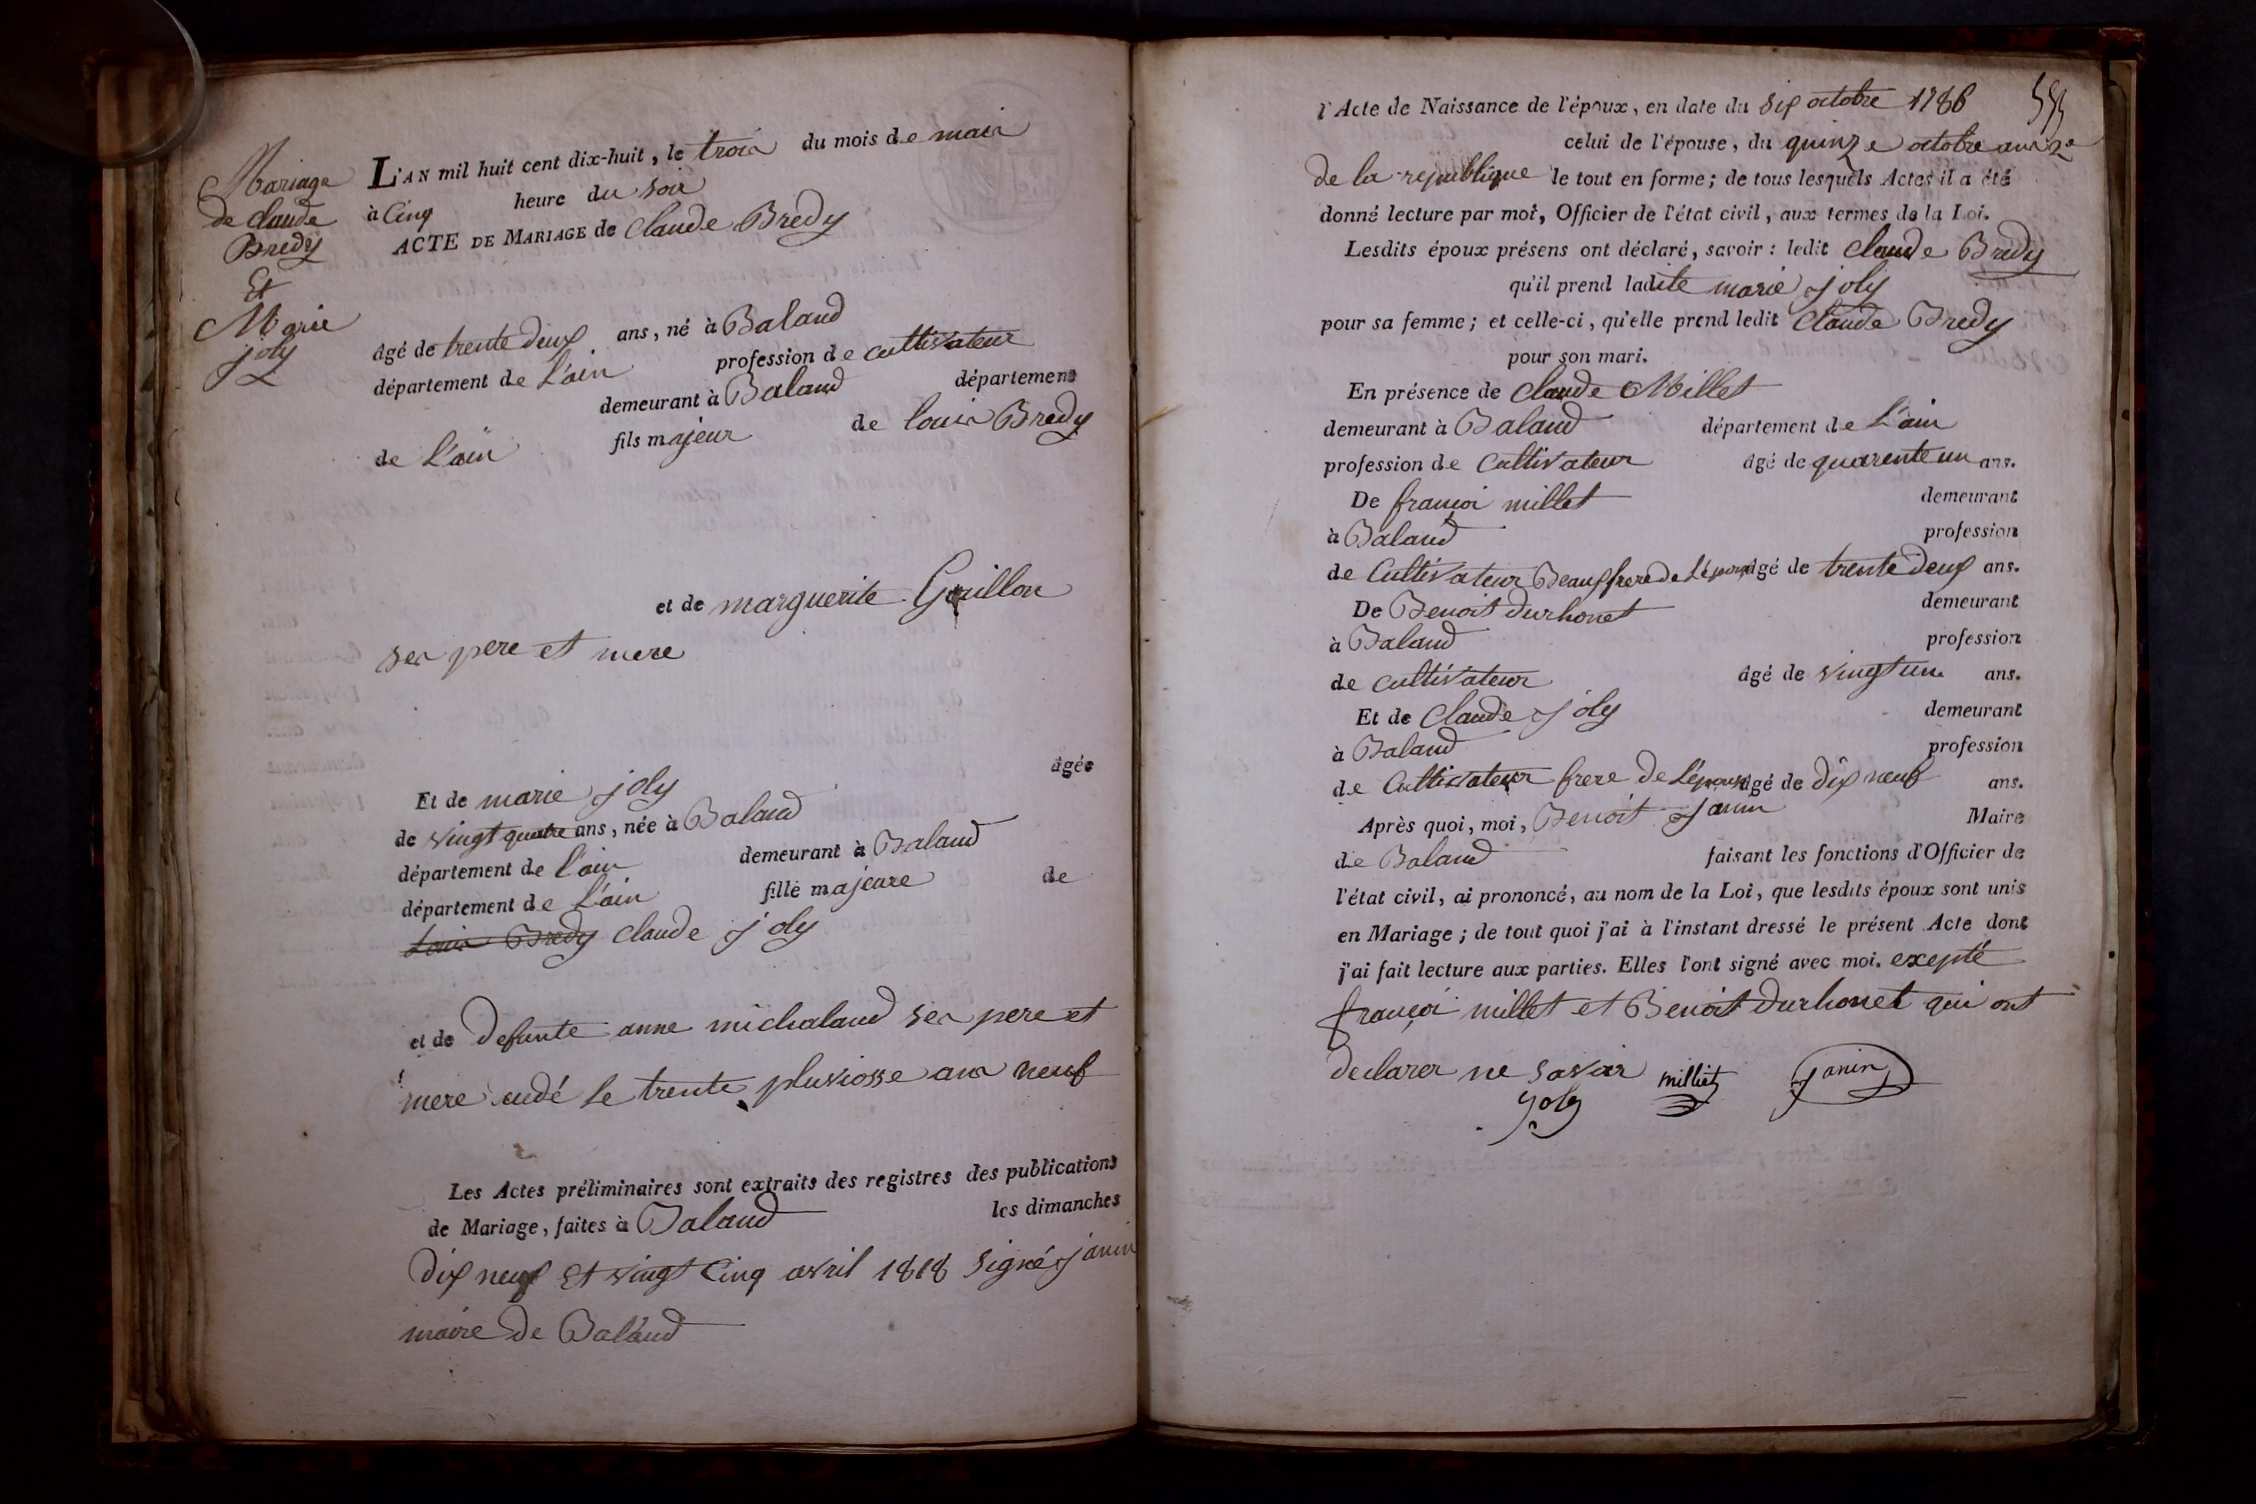 Mariage
de claude
Bredy
Et
Marie
joly
L'AN mil huit cent dix-huit, le trois du mois de mais
à Cinq heure du soir
ACTE DE MARIAGE de Claude Bredy
âgé de trente deux ans, né à Baland
département de L'ain profession de cultivateur
demeurant à Baland département
de L'ain fils majeur de louis Bredy
et de marguerite Guillon
ses pere et mere
Et de marie joly âgée
de vingt quatre ans, née à Baland
département de l'ain demeurant à Baland
département de L'ain fille majeure de
Louis Bredy claude joly
et de defunte anne michaland ses pere et
mere le trente pluviosse ans neuf
Les Actes préliminaires sont extraits des registres des publications
de Mariage, faites à Baland les dimanches
dix neuf Et vingt Cinq avril 1818 signé janin
maire de Baland
l'Acte de Naissance de l'époux, en date du six octobre 1786
celui de l'épouse, du quinze octobre an 2e
de la republique le tout en forme; de tous lesquels Actes il a été
donné lecture par moi, Officier de l'état civil, aux termes de la Loi.
Lesdits époux présens ont déclaré, savoir : ledit claude Bredy
qu'il prend ladite marie joly
pour sa femme; et celle-ci, qu'elle prend ledit Claude Bredy
pour son mari.
En présence de claude Millet
demeurant à Baland département de L'ain
profession de Cultivateur âgé de quarente un ans.
De françoi millet demeurant
à Baland profession
de Cultivateur Beauxfrere de L'epoux âgé de trente deux ans.
De Benoit durhonet demeurant
à Baland profession
de cultivateur âgé de vingt un ans.
Et de Claude joly demeurant
à Baland profession
de Cultivateur frere de L'épouse âgé de dix neuf ans.
Après quoi, moi, Benoit janin Maire
de Baland faisant les fonctions d'Officier de
l'état civil, ai prononcé, au nom de la Loi, que lesdits époux sont unis
en Mariage; de tout quoi j'ai à l'instant dressé le présent Acte dont
j'ai fait lecture aux parties. Elles l'ont signé avec moi. exepté
françoi millet et Benoit durhonet qui ont
declarer ne savoir milliet janin
joly